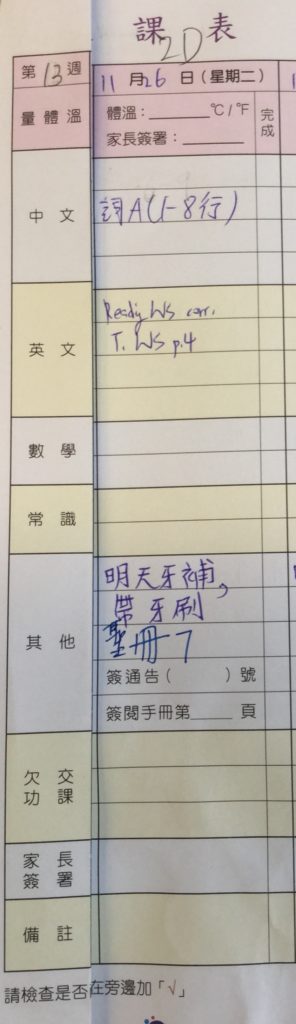 課表
2D
第13週
11月26日(星期二)
量體溫
體溫:______°C/°F
家長簽署:______
完成
中文
詞A(1-8行)
英文
Ready WS corr.
T. WS p.4
數學
常識
其他
明天牙補,
帶牙刷
聖冊7
簽通告( )號
簽閱手冊第____頁
欠交功課
家長簽署
備註
請檢查是否在旁邊加「√」